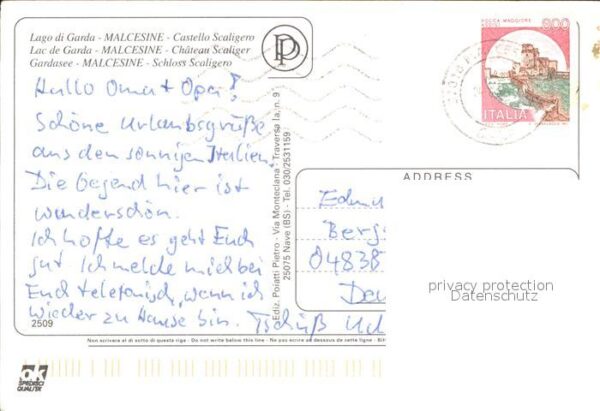 Lago di Garda - MALCESINE - Castello Scaligero
Lac de Garda - MALCESINE - Château Scaliger
Gardasee - MALCESINE - Schloss Scaligero
ROCCA MAGGIORE
900
ITALIA
Hallo Oma + Opa!
Schöne Urlaubsgrüße
aus den sonnigen Italien.
Die Gegend hier ist
wunderschön.
Ich hoffe es geht Euch
gut Ich melde mich bei
Euch telefonisch, wenn ich
wieder zu Hause bin. Tschüß
2509
Ediz. Poiatti Pietro - Via Monteclana - Traversa Ia, n. 9
25075 Nave (BS) - Tel. 030/2531159
ADDRESS
04838
privacy protection
Datenschutz
Non scrivere al di sotto di questa riga - Do not write below this line - Ne pas ecrire au dessous de cette ligne
ok
SPEDISCI
QUALITÀ